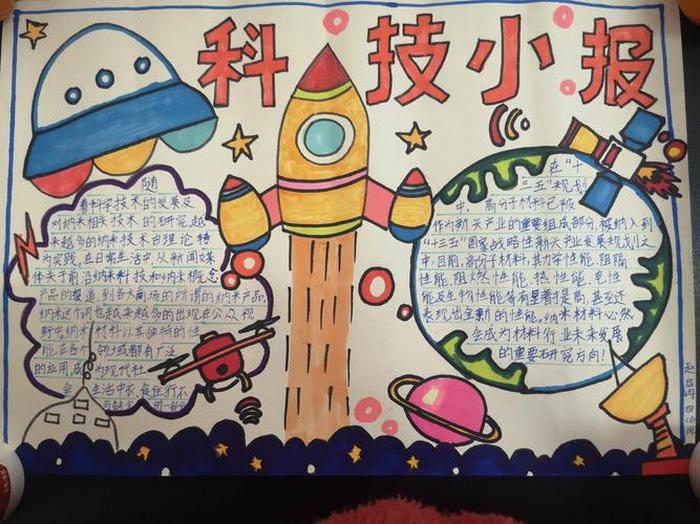 科技小报
随
着科学技术的发展及
对纳米相关技术的研究,越
来越多的纳米技术由理论转
为实践,在日常生活中,从新闻媒
体关于前沿纳米科技和纳米概念
产品的报道,到各大商场的所谓的纳米产品,
纳米这个词也越来越多的出现在公众视
野中。纳米材料以其独特的性
能在各个领域都有广泛
的应用,成为现代社
会生活中衣、食住行不
在“十
三五”规划
中,高分子材料已被
作为新兴产业的重要组成部分,被纳入到
“十三五”国家战略性新兴产业发展规划之
中,目前,高分子材料,其力学性能,阻隔
性能,阻燃性能,热性能,电性
能及生物性能等有显著提高,甚至还
表现出全新的性能。纳米材料必然
会成为材料行业未来发展
的重要研究方向!